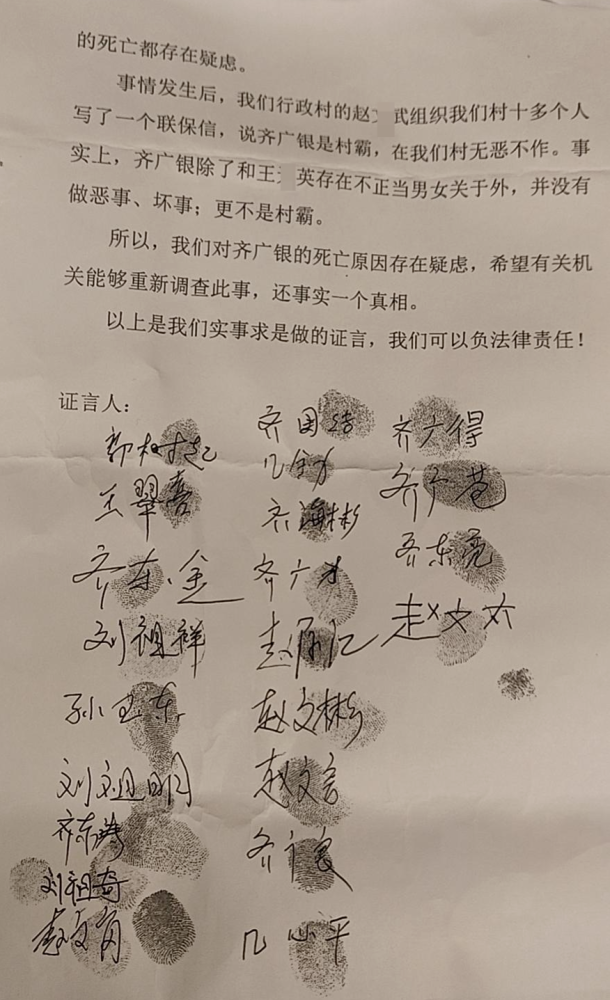 的死亡都存在疑虑。
事情发生后，我们行政村的赵 武组织我们村十多个人
写了一个联保信，说齐广银是村霸，在我们村无恶不作。事
实上，齐广银除了和王 英存在不正当男女关于外，并没有
做恶事、坏事；更不是村霸。
所以，我们对齐广银的死亡原因存在疑虑，希望有关机
关能够重新调查此事，还事实一个真相。
以上是我们实事求是做的证言，我们可以负法律责任！
证言人：
王翠喜
齐东金
刘祖祥
孙玉东
刘祖明
刘祖奇
齐海彬
齐广才
赵文彬
赵文言
齐广良
齐广得
齐东亮